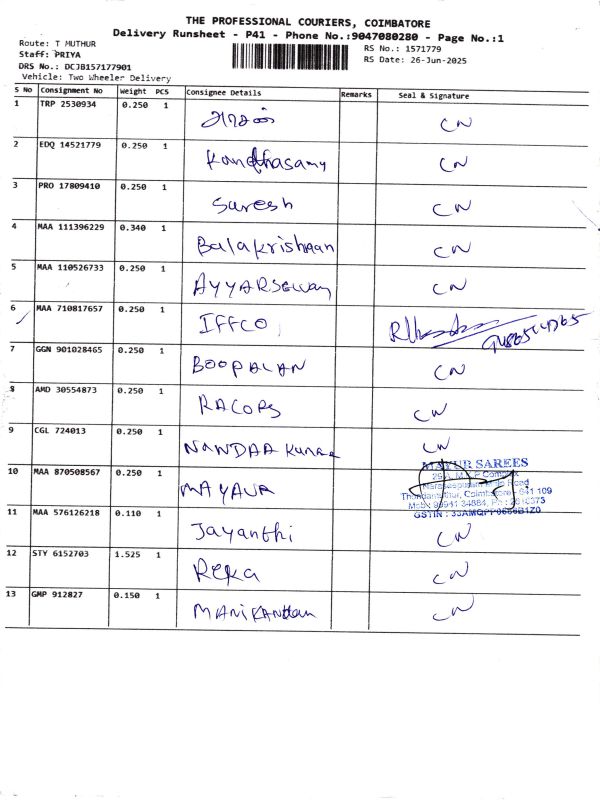 THE PROFESSIONAL COURIERS, COIMBATORE
Delivery Runsheet - P41 - Phone No.:9047080280 - Page No.:1
Route: T MUTHUR
Staff: PRIYA
DRS No.: DCJB157177901
Vehicle: Two Wheeler Delivery
RS No.: 1571779
RS Date: 26-Jun-2025
S No Consignment No Weight PCS Consignee Details Remarks Seal & Signature
1 TRP 2530934 0.250 1 CN
2 EDQ 14521779 0.250 1 Kandhasamy CN
3 PRO 17809410 0.250 1 Suresh CN
4 MAA 111396229 0.340 1 Balakrishnan CN
5 MAA 110526733 0.250 1 CN
6 MAA 710817657 0.250 1 IFFCO
7 GGN 901028465 0.250 1 BOOPALAN CN
8 AMD 30554873 0.250 1 RACOPS CN
9 CGL 724013 0.250 1 NANDAA Kumar CN
10 MAA 870508567 0.250 1 MAYAVA
MAYUR SAREES
Road
Coimbatore - 641 109
GSTIN :
11 MAA 576126218 0.110 1 Jayanthi CN
12 STY 6152703 1.525 1 Reka CN
13 GMP 912827 0.150 1 MANIKANdan CN